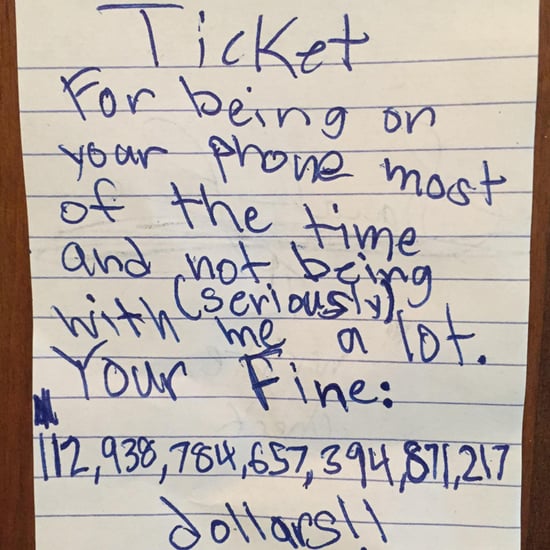 Ticket
For being on
your phone most
of the time
and not being
(seriously)
with me a lot.
Your Fine:
112,938,784,657,394,871,217
dollars!!